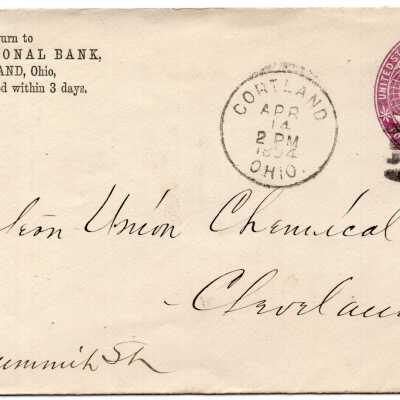 urn to
IONAL BANK,
AND, Ohio,
ed within 3 days.
CORTLAND
APR
14
2 PM
1894
OHIO.
UNITED ST
Union Chemical
Clevelan
ummit St